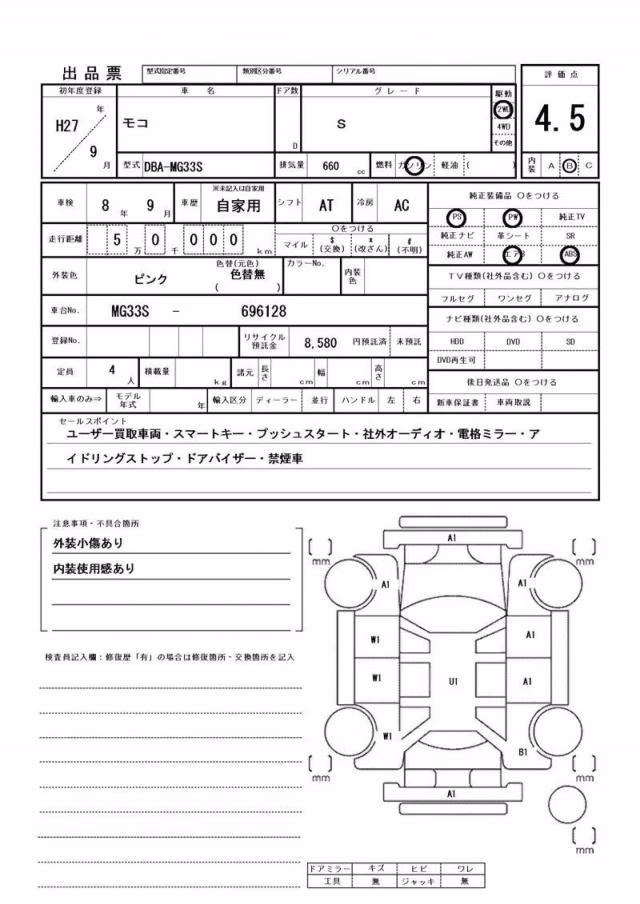 出品票 型式指定番号 類別区分番号 シリアル番号
評価点
初年度登録 車名 ドア数 グレード 駆動
H27 年 モコ S 2WD 4.5
9 月 D 4WD
その他
型式 DBA-MG33S 排気量 660 cc 燃料 ガソリン 軽油 ( ) 内装 A B C
車検 8 年 9 月 車歴 ※未記入は自家用 自家用 シフト AT 冷房 AC 純正装備品 〇をつける
PS PW 純正TV
走行距離 5 万 0 千 000 km 〇をつける
マイル $ (交換) * (改ざん) # (不明)
純正ナビ 革シート SR
純正AW エアB ABS
外装色 ピンク 色替(元色) 色替無 ( ) カラーNo. 内装色
TV種類(社外品含む) 〇をつける
フルセグ ワンセグ アナログ
車台No. MG33S - 696128
ナビ種類(社外品含む) 〇をつける
登録No. リサイクル預託金 8,580 円預託済 未預託 HDD DVD SD
DVD再生可
定員 4 人 積載量 kg 諸元 長さ cm 幅 cm 高さ cm 後日発送品 〇をつける
輸入車のみ⇒ モデル年式 年 輸入区分 ディーラー 並行 ハンドル 左 右 新車保証書 車両取説
セールスポイント
ユーザー買取車両・スマートキー・プッシュスタート・社外オーディオ・電格ミラー・ア
イドリングストップ・ドアバイザー・禁煙車
注意事項・不具合箇所
外装小傷あり
内装使用感あり
検査員記入欄：修復歴「有」の場合は修復箇所・交換箇所を記入
A1
[ ] mm [ ] mm
A1 A1
W1 A1
W1 U1 A1
W1 B1
[ ] mm [ ] mm
A1
[ ] mm
ドアミラー キズ ヒビ ワレ
工具 無 ジャッキ 無